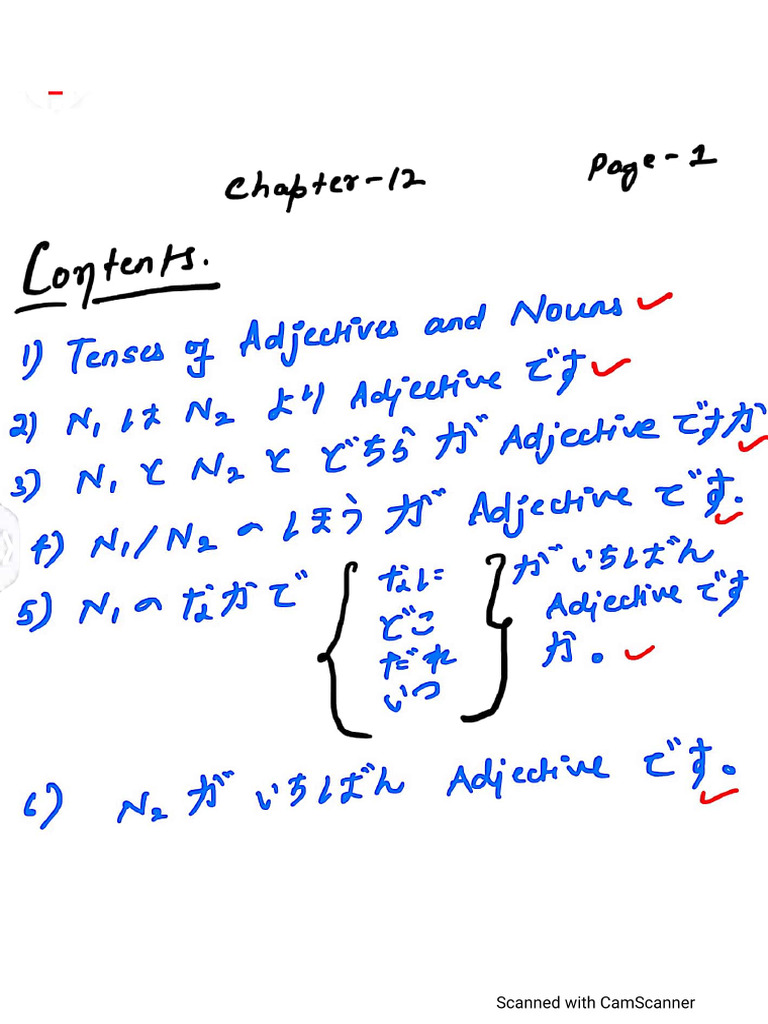 Chapter-12 Page-1
Contents.
1) Tenses of Adjectives and Nouns
2) N1 は N2 より Adjective です
3) N1 と N2 と どちら が Adjective ですか
4) N1/N2 の ほう が Adjective です.
5) N1 の なかで { なに } が いちばん
どこ Adjective です
だれ か。
いつ
6) N2 が いちばん Adjective です。
Scanned with CamScanner